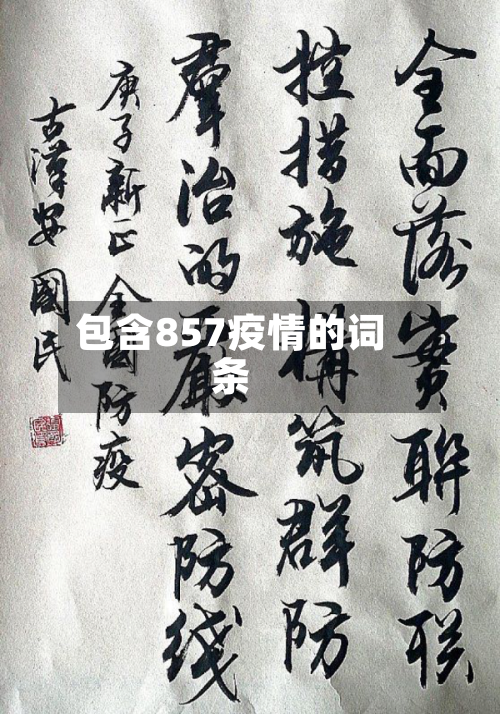 全面落實聯防联
控措施構筑群防
羣治的嚴密防线
庚子新正全国防疫
古漢安國民
包含857疫情的词
条